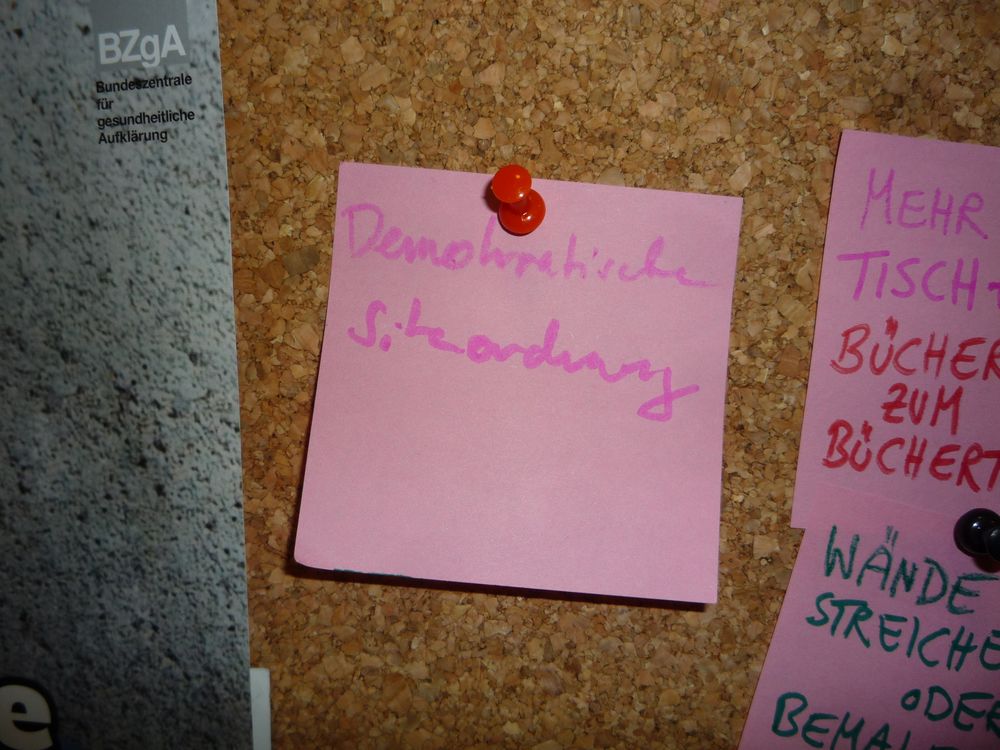 BZgA
Bundeszentrale
für
gesundheitliche
Aufklärung
Demokratische
Sitzordnung
MEHR
TISCH-
BÜCHER
ZUM
BÜCHERT
WÄNDE
STREICHE
ODER
BEMAL
e